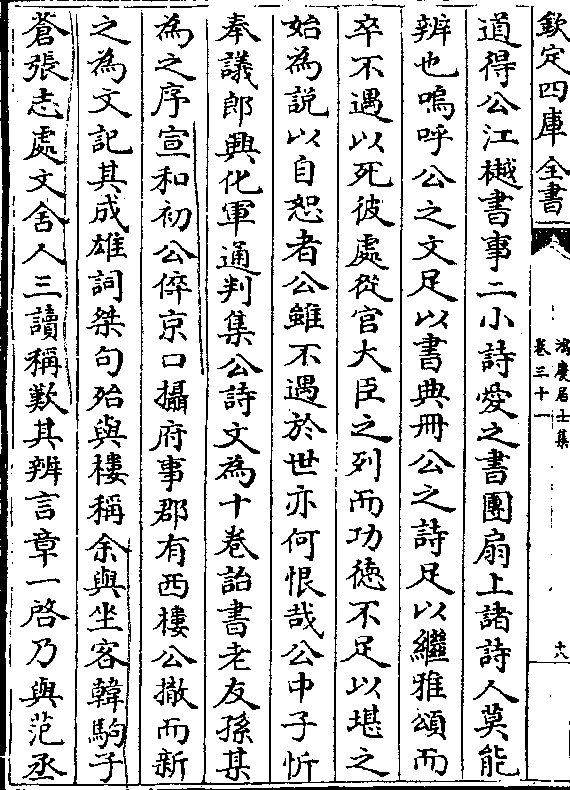 欽定四庫全書
鴻慶居士集
卷三十一
十八
道得公江樾書事二小詩愛之書團扇上諸詩人莫能
辨也嗚呼公之文足以書典冊公之詩足以繼雅頌而
卒不遇以死彼處從官大臣之列而功德不足以堪之
始為說以自恕者公雖不遇於世亦何恨哉公中子忻
奉議郎興化軍通判集公詩文為十卷詒書老友孫某
為之序宣和初公倅京口攝府事郡有西樓公撤而新
之為文記其成雄詞桀句殆與樓稱余與坐客韓駒子
蒼張志處文舍人三讀稱歎其辨言章一啓乃與范丞